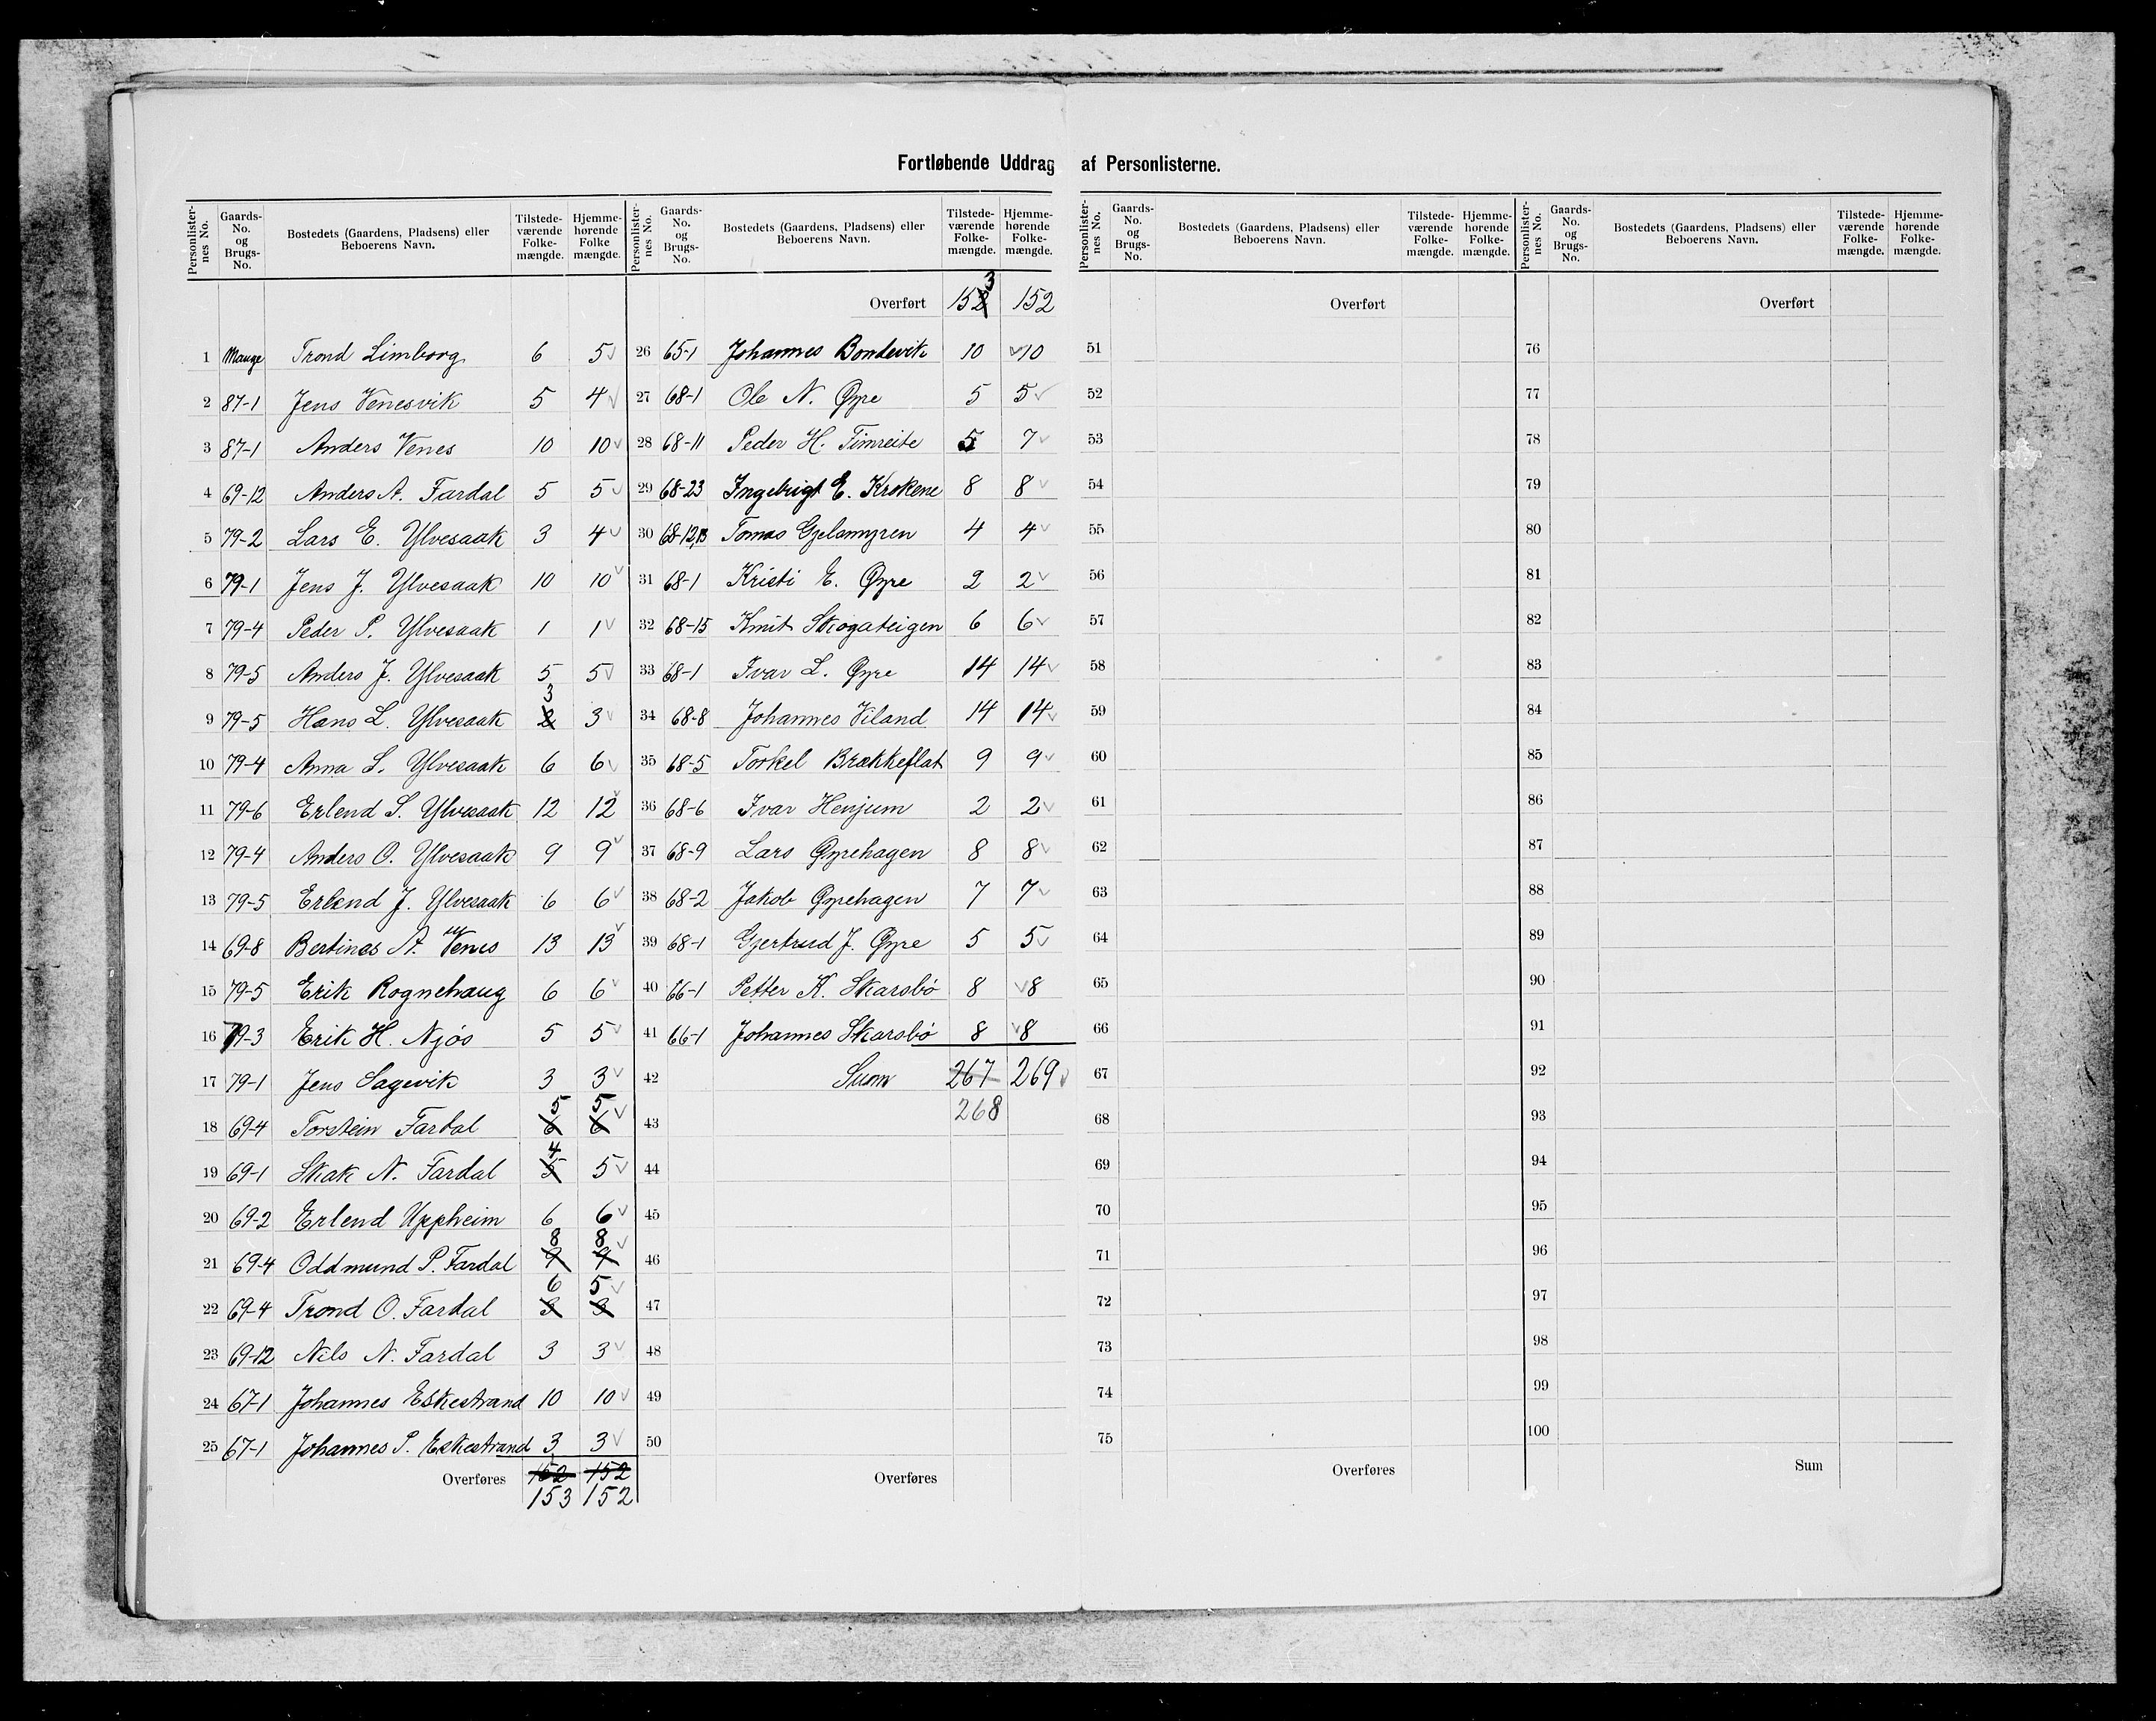 Fortløbende Uddrag af Personlisterne.
Personlister-nes No. Gaards-No. og Brugs-No. Bostedets (Gaardens, Pladsens) eller Beboerens Navn. Tilstede-værende Folke-mængde. Hjemme-hørende Folke mængde.
1 Mange Trond Limborg 6 5
2 87-1 Jens Venesvik 5 4
3 87-1 Anders Venes 10 10
4 69-12 Anders A. Fardal 5 5
5 79-2 Lars E. Ylvesaak 3 4
6 79-1 Jens J. Ylvesaak 10 10
7 79-4 Peder P. Ylvesaak 1 1
8 79-5 Anders J. Ylvesaak 5 5
9 79-5 Hans L. Ylvesaak 2 3 3
10 79-4 Anna L. Ylvesaak 6 6
11 79-6 Erlend S. Ylvesaak 12 12
12 79-4 Anders O. Ylvesaak 9 9
13 79-5 Erlend J. Ylvesaak 6 6
14 69-8 Bertines A. Venes 13 13
15 79-5 Erik Rognehaug 6 6
16 79-3 Erik H. Njøs 5 5
17 79-1 Jens Sagevik 3 3
18 69-4 Torstein Fardal 6 5 6 5
19 69-1 Skak N. Fardal 5 4 5
20 69-2 Erlend Uppheim 6 6
21 69-4 Oddmund P. Fardal 9 8 9 8
22 69-4 Trond O. Fardal 3 6 3 5
23 69-12 Nils N. Fardal 3 3
24 67-1 Johannes Eskestrand 10 10
25 67-1 Johannes P. Eskestrand 3 3
Overføres 152 152
153 152
Personlister-nes No. Gaards-No. og Brugs-No. Bostedets (Gaardens, Pladsens) eller Beboerens Navn. Tilstede-værende Folke-mængde. Hjemme-hørende Folke-mængde.
Overført 152 3 152
26 65-1 Johannes Bondevik 10 10
27 68-1 Ole N. Øyre 5 5
28 68-11 Peder H. Timreite 5 7
29 68-23 Ingebrigt E. Krokene 8 8
30 68-12,13 Tomas Gjelsmyren 4 4
31 68-1 Kristi E. Øyre 2 2
32 68-15 Knut Skogateigen 6 6
33 68-1 Ivar L. Øyre 14 14
34 68-8 Johannes Viland 14 14
35 68-5 Torkel Brækkeflat 9 9
36 68-6 Ivar Henjum 2 2
37 68-9 Lars Øyrehagen 8 8
38 68-2 Jakob Øyrehagen 7 7
39 68-1 Gjertrud J. Øyre 5 5
40 66-1 Petter K. Skarsbø 8 8
41 66-1 Johannes Skarsbø 8 8
42 Sum 267 269
268
43
44
45
46
47
48
49
50
Overføres
Personlister-nes No. Gaards-No. og Brugs-No. Bostedets (Gaardens, Pladsens) eller Beboerens Navn. Tilstede-værende Folke-mængde. Hjemme-hørende Folke-mængde.
Overført
51
52
53
54
55
56
57
58
59
60
61
62
63
64
65
66
67
68
69
70
71
72
73
74
75
Overføres
Personlister-nes No. Gaards-No. og Brugs-No. Bostedets (Gaardens, Pladsens) eller Beboerens Navn. Tilstede-værende Folke-mængde. Hjemme-hørende Folke-mængde.
Overført
76
77
78
79
80
81
82
83
84
85
86
87
88
89
90
91
92
93
94
95
96
97
98
99
100
Sum